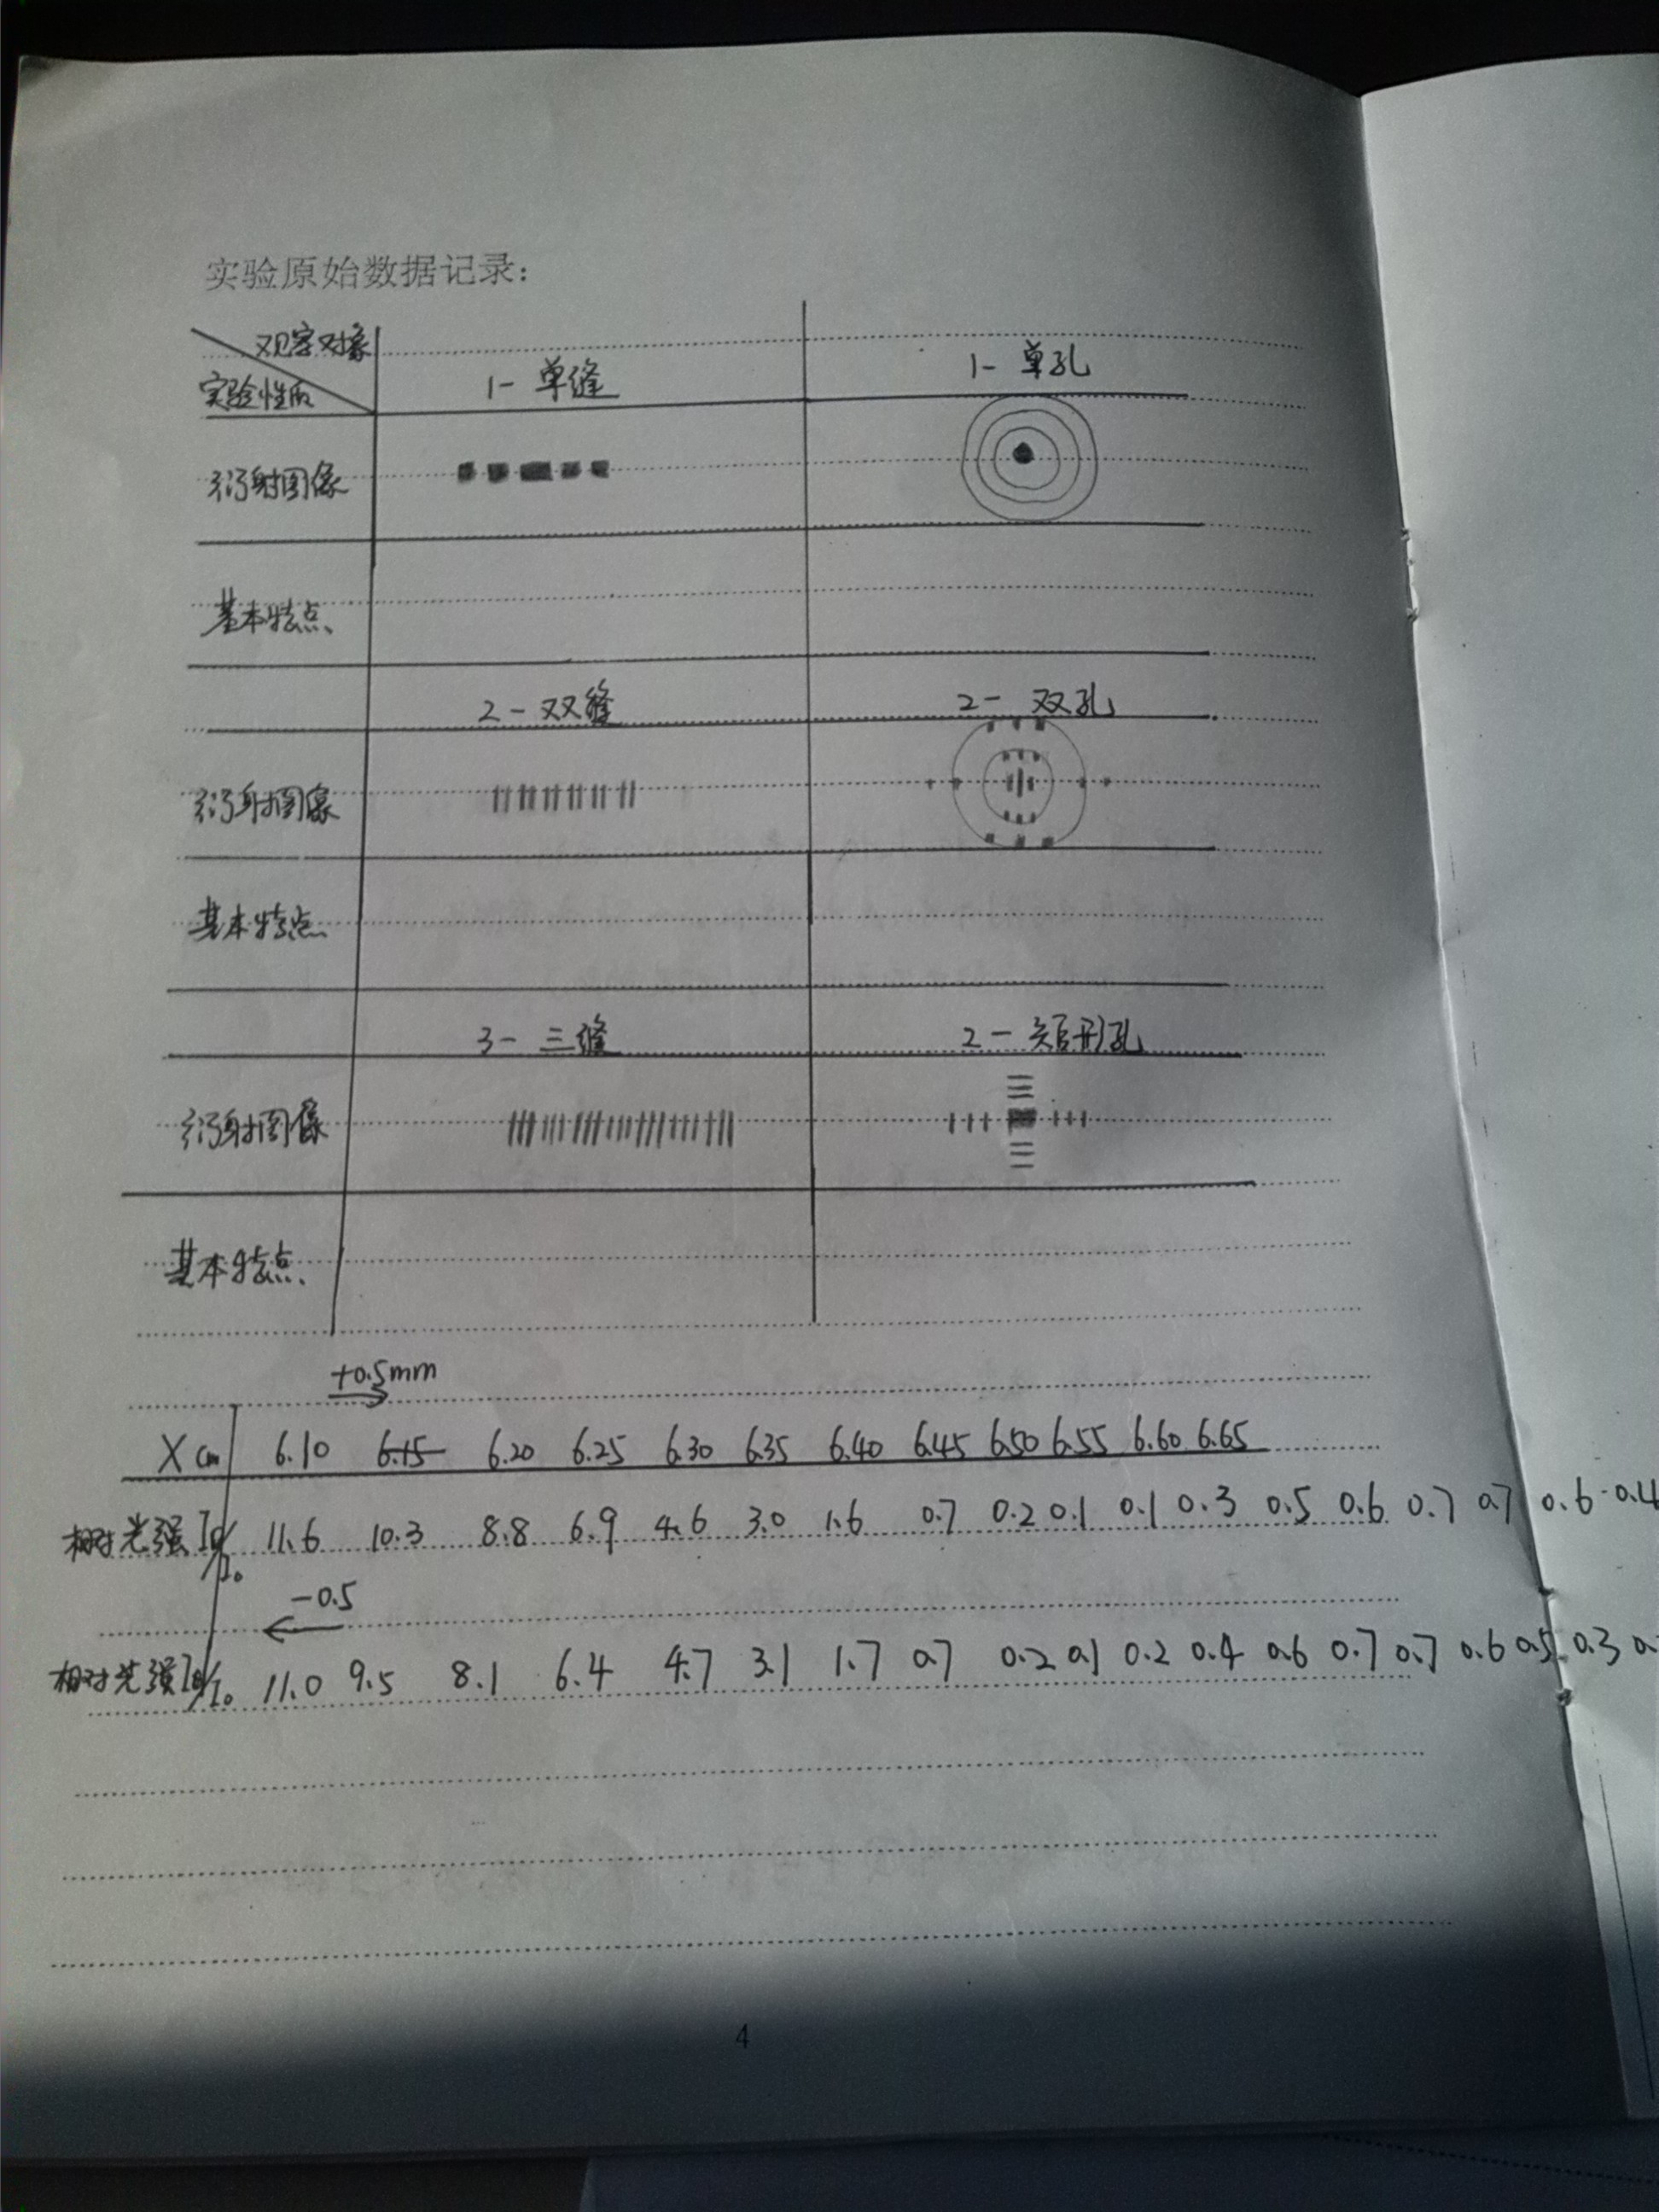 实验原始数据记录:
观察对象
实验性质 1- 单缝 1- 单孔
衍射图像
基本特点、
2- 双缝 2- 双孔
衍射图像
基本特点
3- 三缝 2- 矩形孔
衍射图像
基本特点、
+0.5mm
X cm 6.10 6.15 6.20 6.25 6.30 6.35 6.40 6.45 6.50 6.55 6.60 6.65
相对光强 Iθ/I₀ 11.6 10.3 8.8 6.9 4.6 3.0 1.6 0.7 0.2 0.1 0.1 0.3 0.5 0.6 0.7 0.7 0.6 0.4
-0.5
相对光强 Iθ/I₀ 11.0 9.5 8.1 6.4 4.7 3.1 1.7 0.7 0.2 0.1 0.2 0.4 0.6 0.7 0.7 0.6 0.5 0.3
4